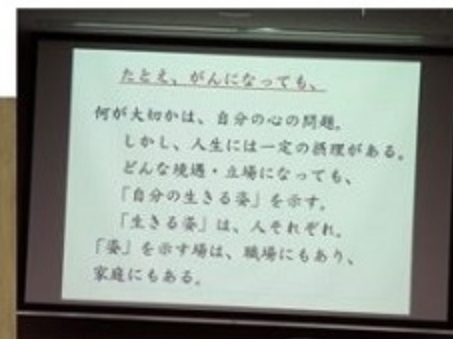 たとえ、がんになっても、
何が大切かは、自分の心の問題。
しかし、人生には一定の摂理がある。
どんな境遇・立場になっても、
「自分の生きる姿」を示す。
「生きる姿」は、人それぞれ。
「姿」を示す場は、職場にもあり、
家庭にもある。